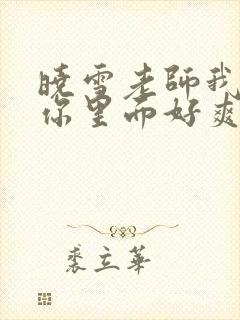 曉雪老師我
你里面好爽
裘立華